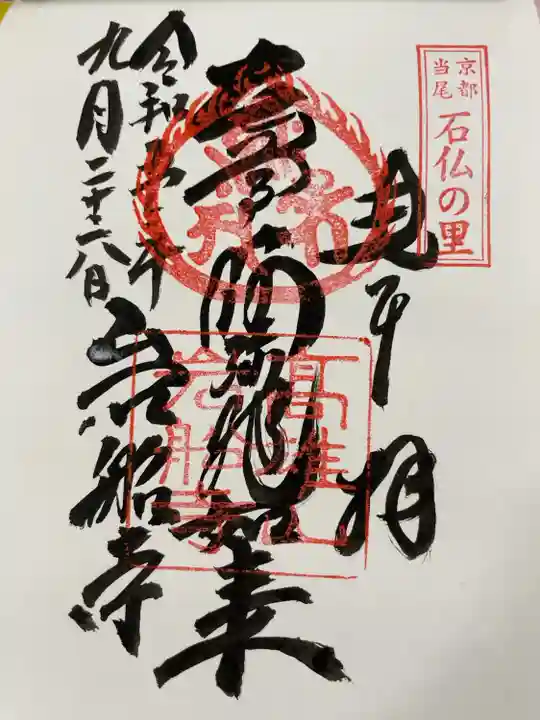 京都
当尾
石仏の里
奉拝
阿弥陀如来
岩船寺
高雄山
岩船寺
九月二十六日